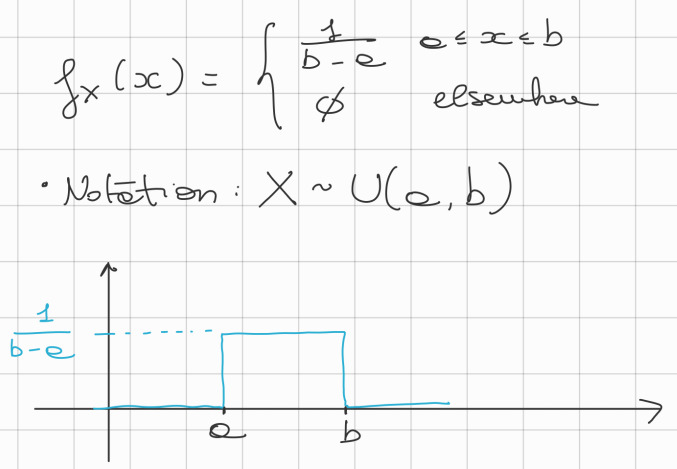 f_X(x) = { 1/(b-a) a ≤ x ≤ b
∅ elsewhere
• Notation: X ~ U(a, b)
1/(b-a)
a b